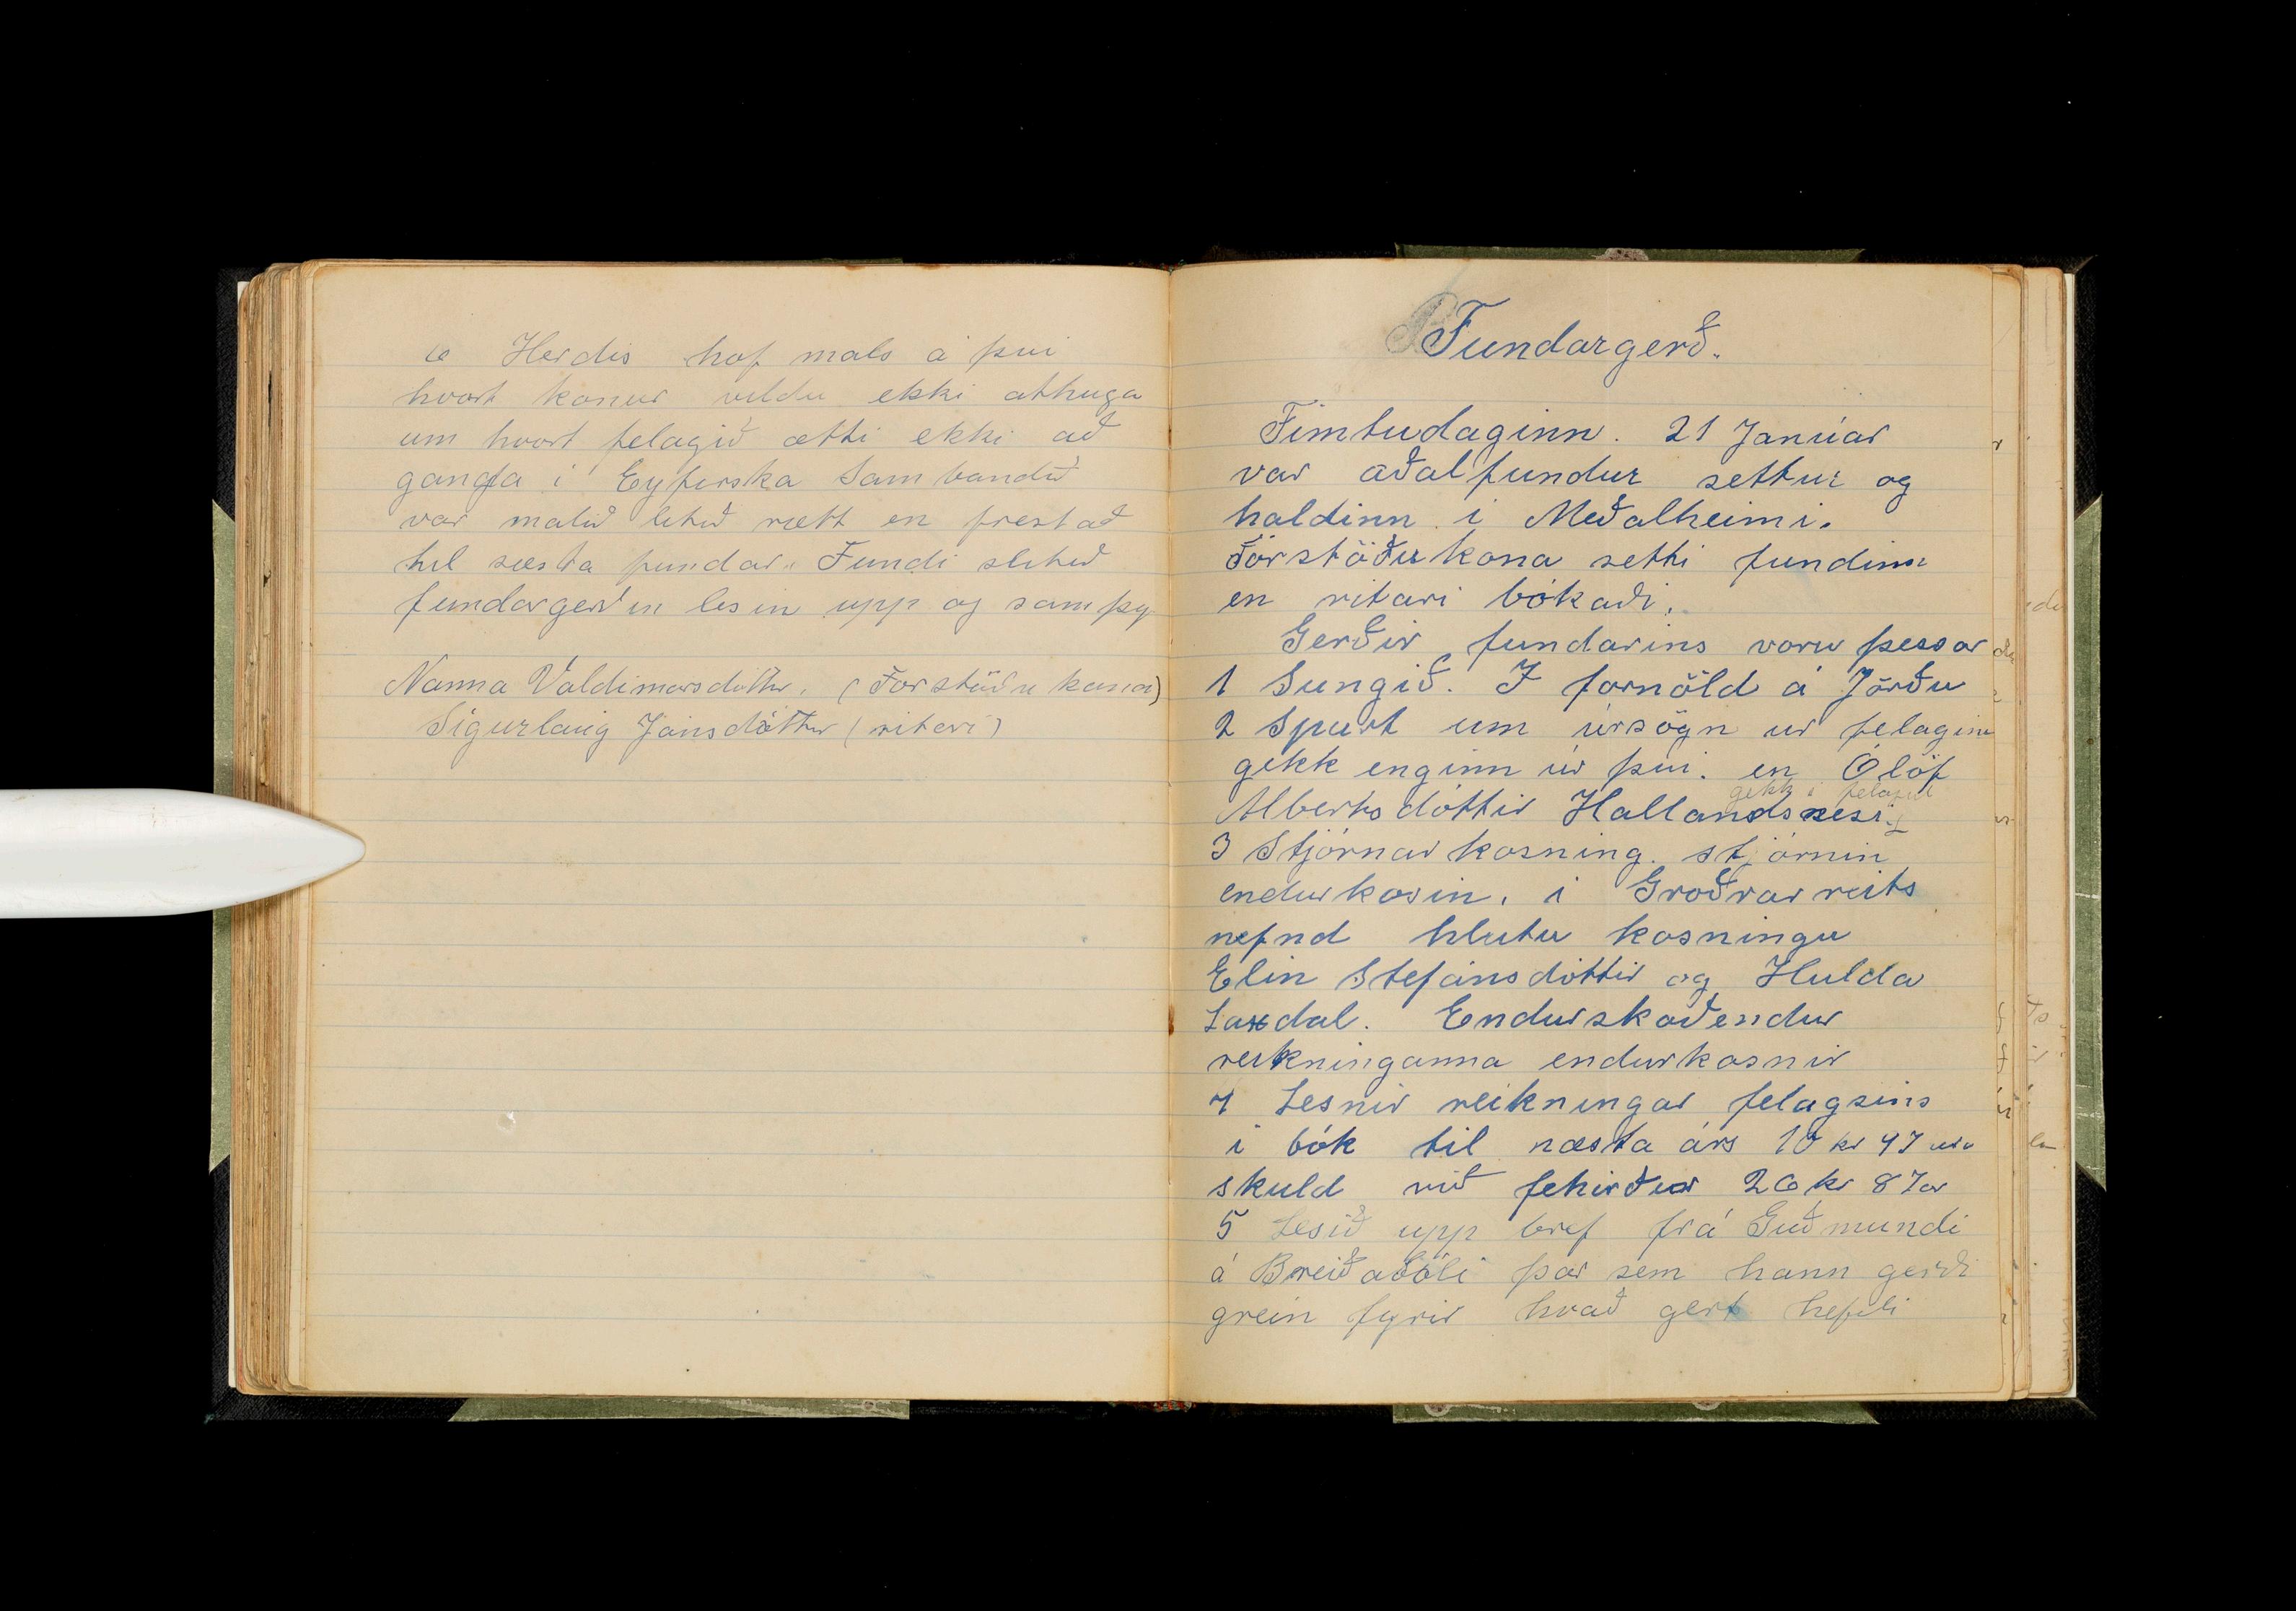 6 Herdis hof mals á þvi
hvort konur vildu ekki athuga
um hvort felagið ætti ekki að
ganga i Eyfirska Sambandið
var malið litið rætt en frestað
til næsta fundar. Fundi slitið
fundargerðin lesin upp og samþy
Nanna Valdimarsdóttir. (Forstöðukona)
Sigurlaug Jónsdóttir (ritari)
Fundargerð.
Fimtudaginn. 21 Janúar
var aðalfundur settur og
haldinn i Meðalheimi.
Forstöðukona setti fundinn
en ritari bókaði.
Gerðir fundarins voru þessar
1 Sungið. I fornöld á Jörðu
2 Spurt um úrsögn ur felaginu
gekk enginn úr þvi. en Ólöf
gekk i felagið
Albertsdóttir Hallandsnesi.
3 Stjórnarkosning. stjórnin
endurkosin. i Groðrarreits
nefnd hlutu kosningu
Elin Stefánsdóttir og Hulda
Laxdal. Endurskoðendur
reikninganna endurkosnir
4 Lesnir reikningar felagsins
i bók til næsta árs 10 kr 97
skuld við fehirðir 26 kr 87
5 Lesið upp bref frá Guðmundi
á Breiðabóli þar sem hann gerði
grein fyrir hvað gert hefði